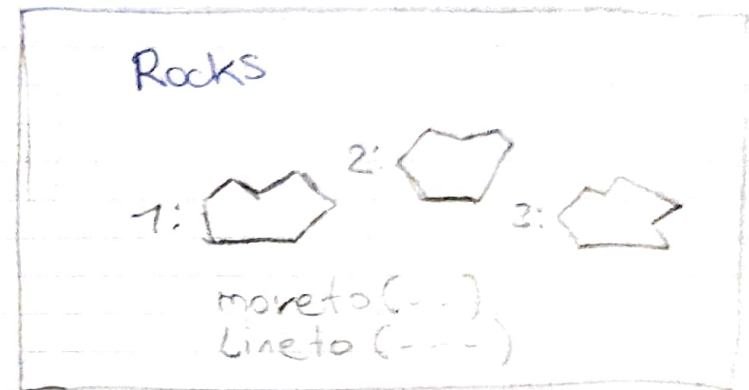 Rocks
2:
1:
3:
moveto(---)
Lineto(----)